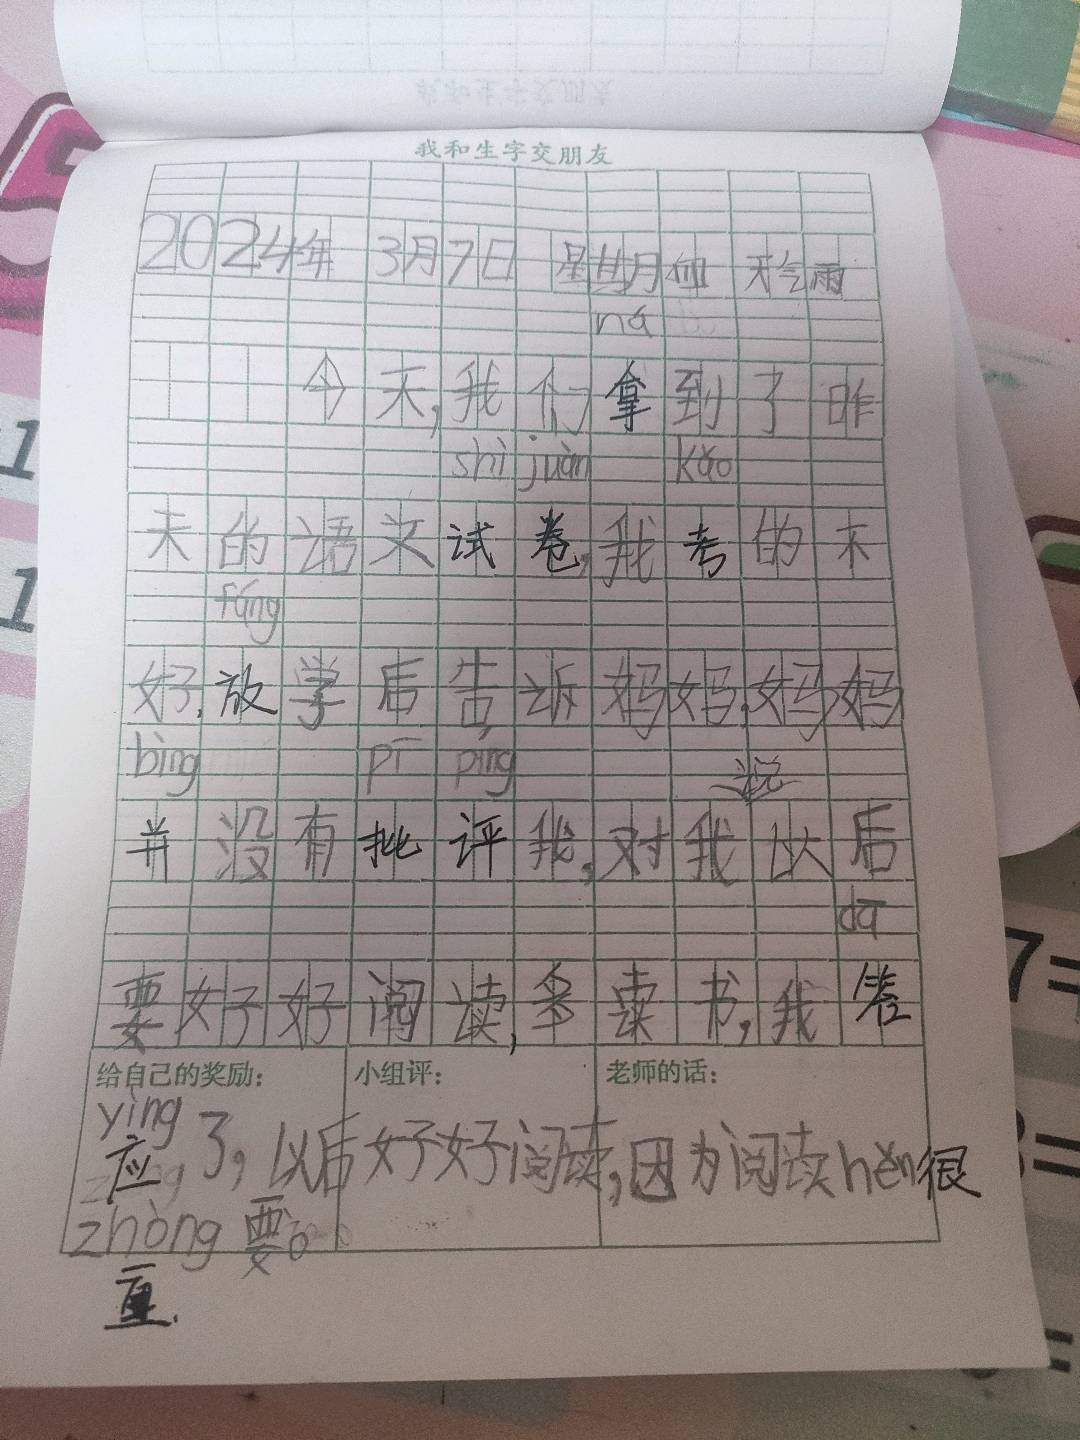 我和生字交朋友
2024年 3月7日 星期四 天气雨
ná
今天,我们拿到了昨
shì juàn kǎo
天的语文试卷,我考的不
fáng
好,放学后告诉妈妈,妈妈
bìng pī píng 说
并没有批评我,对我以后
dā
要好好阅读,多读书,我答
给自己的奖励: 小组评: 老师的话:
yìng
应了,以后好好阅读,因为阅读hěn很
zhòng要。
重.
7=